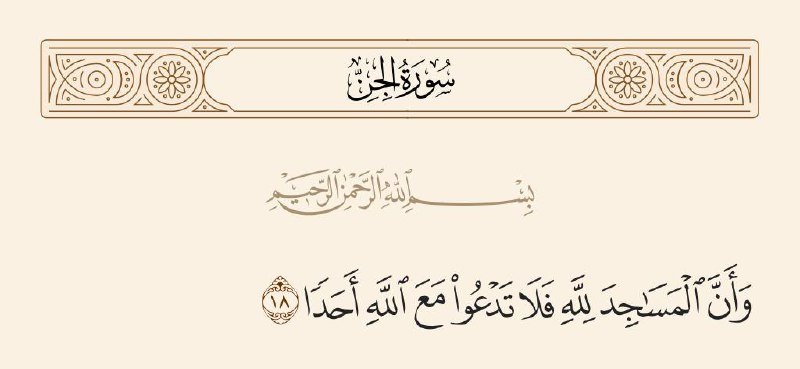 سُورَةُ الجِنِّ
بِسْمِ ٱللَّهِ ٱلرَّحْمَٰنِ ٱلرَّحِيمِ
وَأَنَّ ٱلْمَسَٰجِدَ لِلَّهِ فَلَا تَدْعُوا۟ مَعَ ٱللَّهِ أَحَدًا ١٨